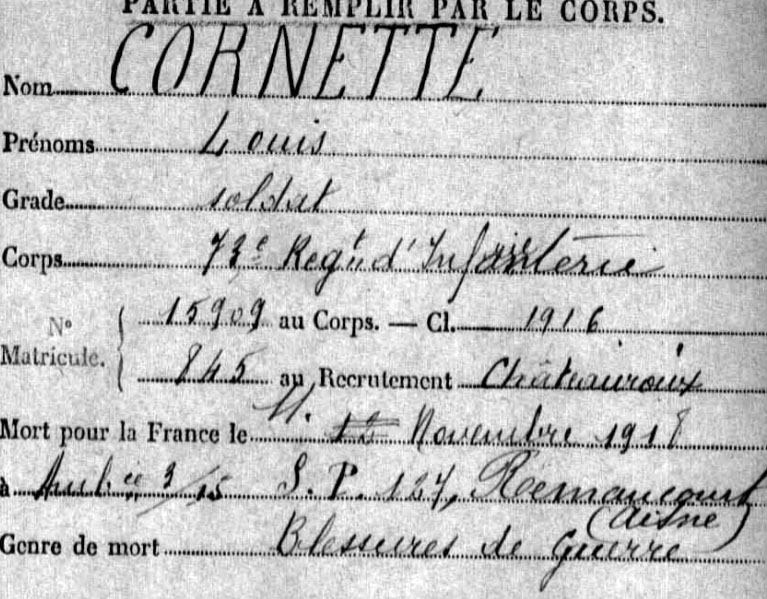 PARTIE À REMPLIR PAR LE CORPS.
Nom CORNETTE
Prénoms Louis
Grade soldat
Corps 73e Regt d'Infanterie
No Matricule. 15909 au Corps. — Cl. 1916
845 au Recrutement Châteauroux
Mort pour la France le 11. Novembre 1918
à Ambce 3/15 S.P. 127, Remaucourt
(Aisne)
Genre de mort Blessures de Guerre